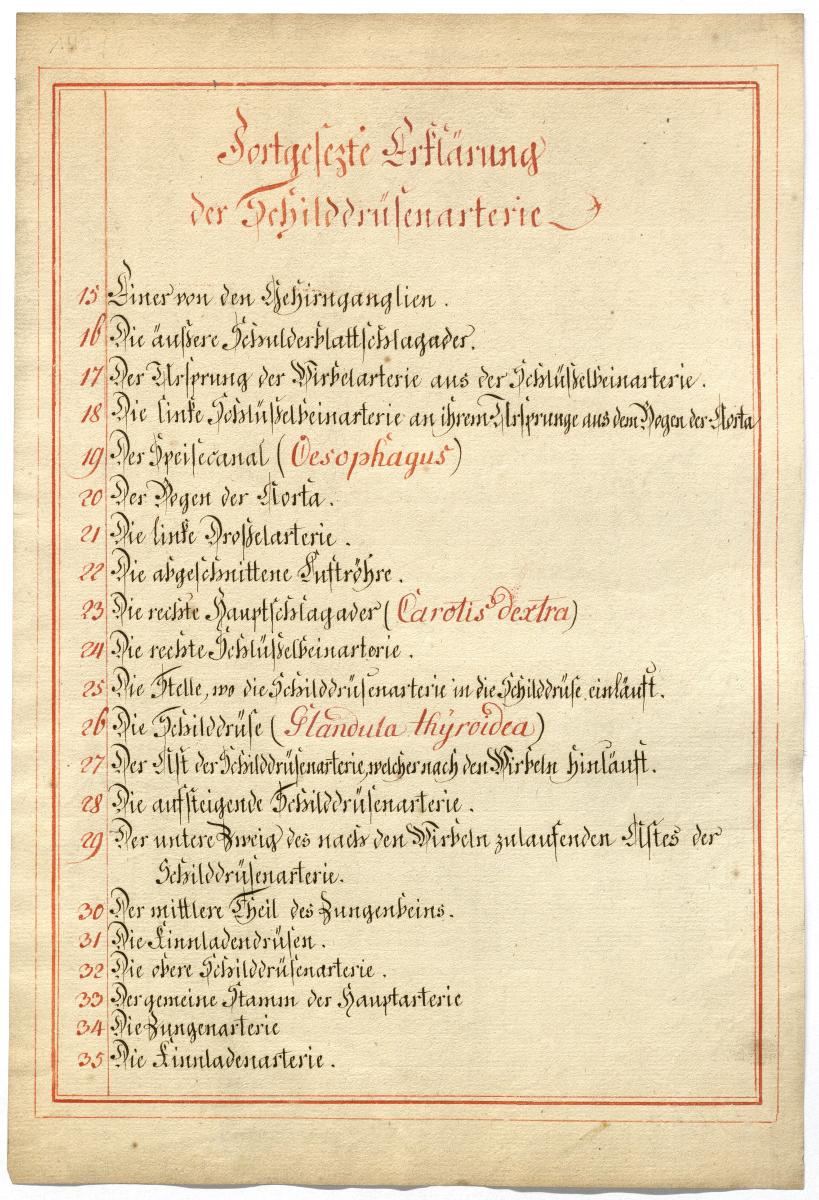 Fortgesezte Erklärung
der Schilddrüsenarterie
15 Einer von den Gehirnganglien.
16 Die äußere Schulderblattschlagader.
17 Der Ursprung der Wirbelarterie aus der Schlüßelbeinarterie.
18 Die linke Schlüßelbeinarterie an ihrem Ursprunge aus dem Bogen der Aorta
19 Der Speisecanal (Oesophagus)
20 Der Bogen der Aorta.
21 Die linke Droßelarterie.
22 Die abgeschnittene Luftröhre.
23 Die rechte Hauptschlagader (Carotis dextra)
24 Die rechte Schlüßelbeinarterie.
25 Die Stelle, wo die Schilddrüsenarterie in die Schilddrüse einläuft.
26 Die Schilddrüse (Glandula thyroidea)
27 Der Ast der Schilddrüsenarterie, welcher nach den Wirbeln hinläuft.
28 Die aufsteigende Schilddrüsenarterie.
29 Der untere Zweig des nach den Wirbeln zulaufenden Astes der
Schilddrüsenarterie.
30 Der mittlere Theil des Zungenbeins.
31 Die Kinnladendrüsen.
32 Die obere Schilddrüsenarterie.
33 Der gemeine Stamm der Hauptarterie
34 Die Zungenarterie
35 Die Kinnladenarterie.